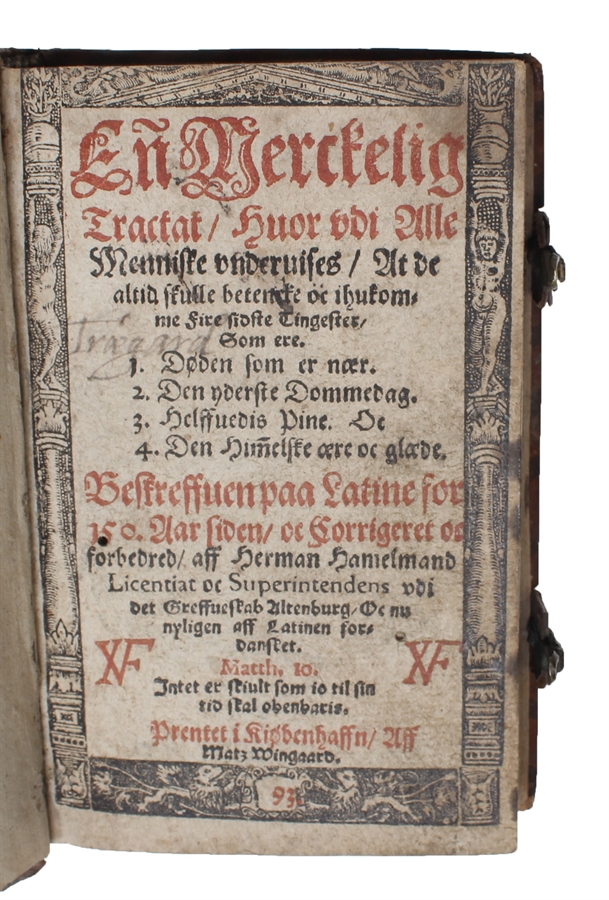 Eñ Merckelig
Tractat/ Huor vdi Alle
Menniske vnderuises/ At de
altid skulle betencke oc ihukom⸗
me Fire sidste Tingester/
Som ere.
1. Døden som er nær.
2. Den yderste Dommedag.
3. Helffuedis Pine. Oc
4. Den Him̃elske ære oc glæde.
Beskreffuen paa Latine for
150. Aar siden/ oc Corrigeret oc
forbedred/ aff Herman Hamelmand
Licentiat oc Superintendens vdi
det Greffueskab Altenburg/ Oc nu
nyligen aff Latinen for⸗
dansket.
Matth. 10.
Intet er skiult som io til sin
tid skal obenbaris.
Prentet i Kiøbenhaffn/ Aff
Matz Wingaard.